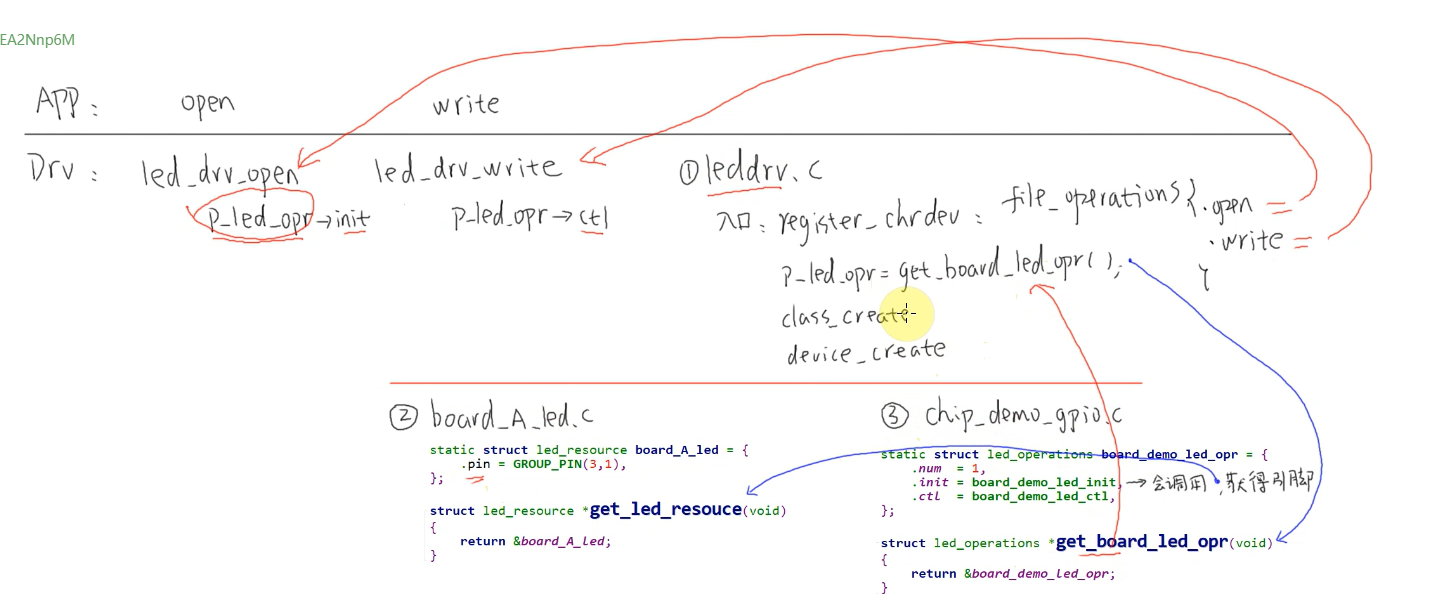 EA2Nnp6M
APP: open write
Drv: led_drv_open led_drv_write ① leddrv.c
p_led_opr→init p_led_opr→ctl 入口: register_chrdev: file_operations { .open =
.write =
}
p_led_opr = get_board_led_opr();
class_create
device_create
② board_A_led.c
static struct led_resource board_A_led = {
.pin = GROUP_PIN(3,1),
};
struct led_resource *get_led_resouce(void)
{
return &board_A_led;
}
③ chip_demo_gpio.c
static struct led_operations board_demo_led_opr = {
.num = 1,
.init = board_demo_led_init, → 会调用, 获得引脚
.ctl = board_demo_led_ctl,
};
struct led_operations *get_board_led_opr(void)
{
return &board_demo_led_opr;
}